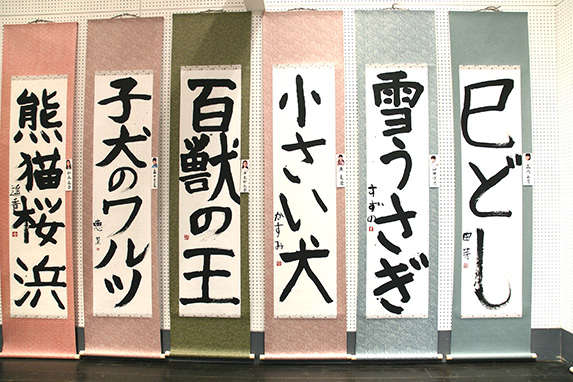 巳どし
雪うさぎ
すずの
小さい犬
かすみ
百獣の王
子犬のワルツ
恵
熊猫桜浜
遥香